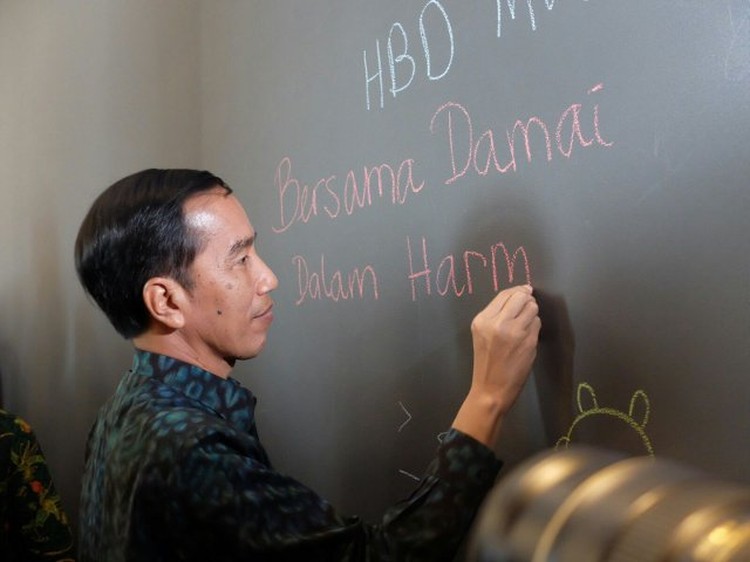 HBD
Bersama Damai
Dalam Harm